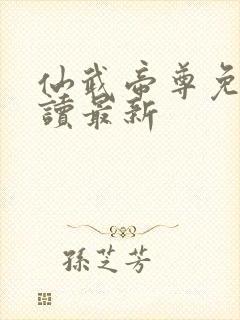 仙武帝尊免
讀最新
孫芝芳